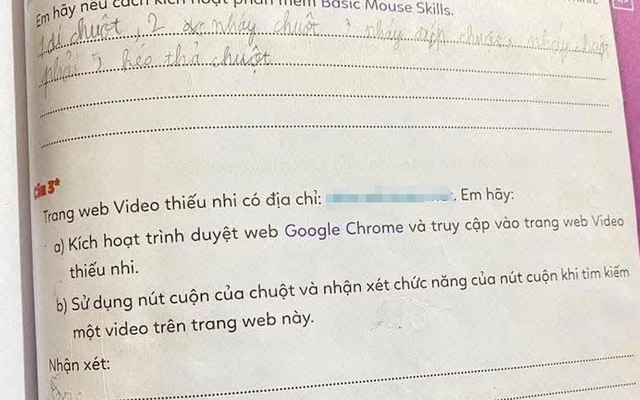 Em hãy nêu cách kích hoạt phần mềm Basic Mouse Skills.
1 di chuột, 2 nháy chuột 3 nháy đúp chuột, nháy chuột
phải 5 kéo thả chuột
Câu 3*
Trang web Video thiếu nhi có địa chỉ: . Em hãy:
a) Kích hoạt trình duyệt web Google Chrome và truy cập vào trang web Video
thiếu nhi.
b) Sử dụng nút cuộn của chuột và nhận xét chức năng của nút cuộn khi tìm kiếm
một video trên trang web này.
Nhận xét: